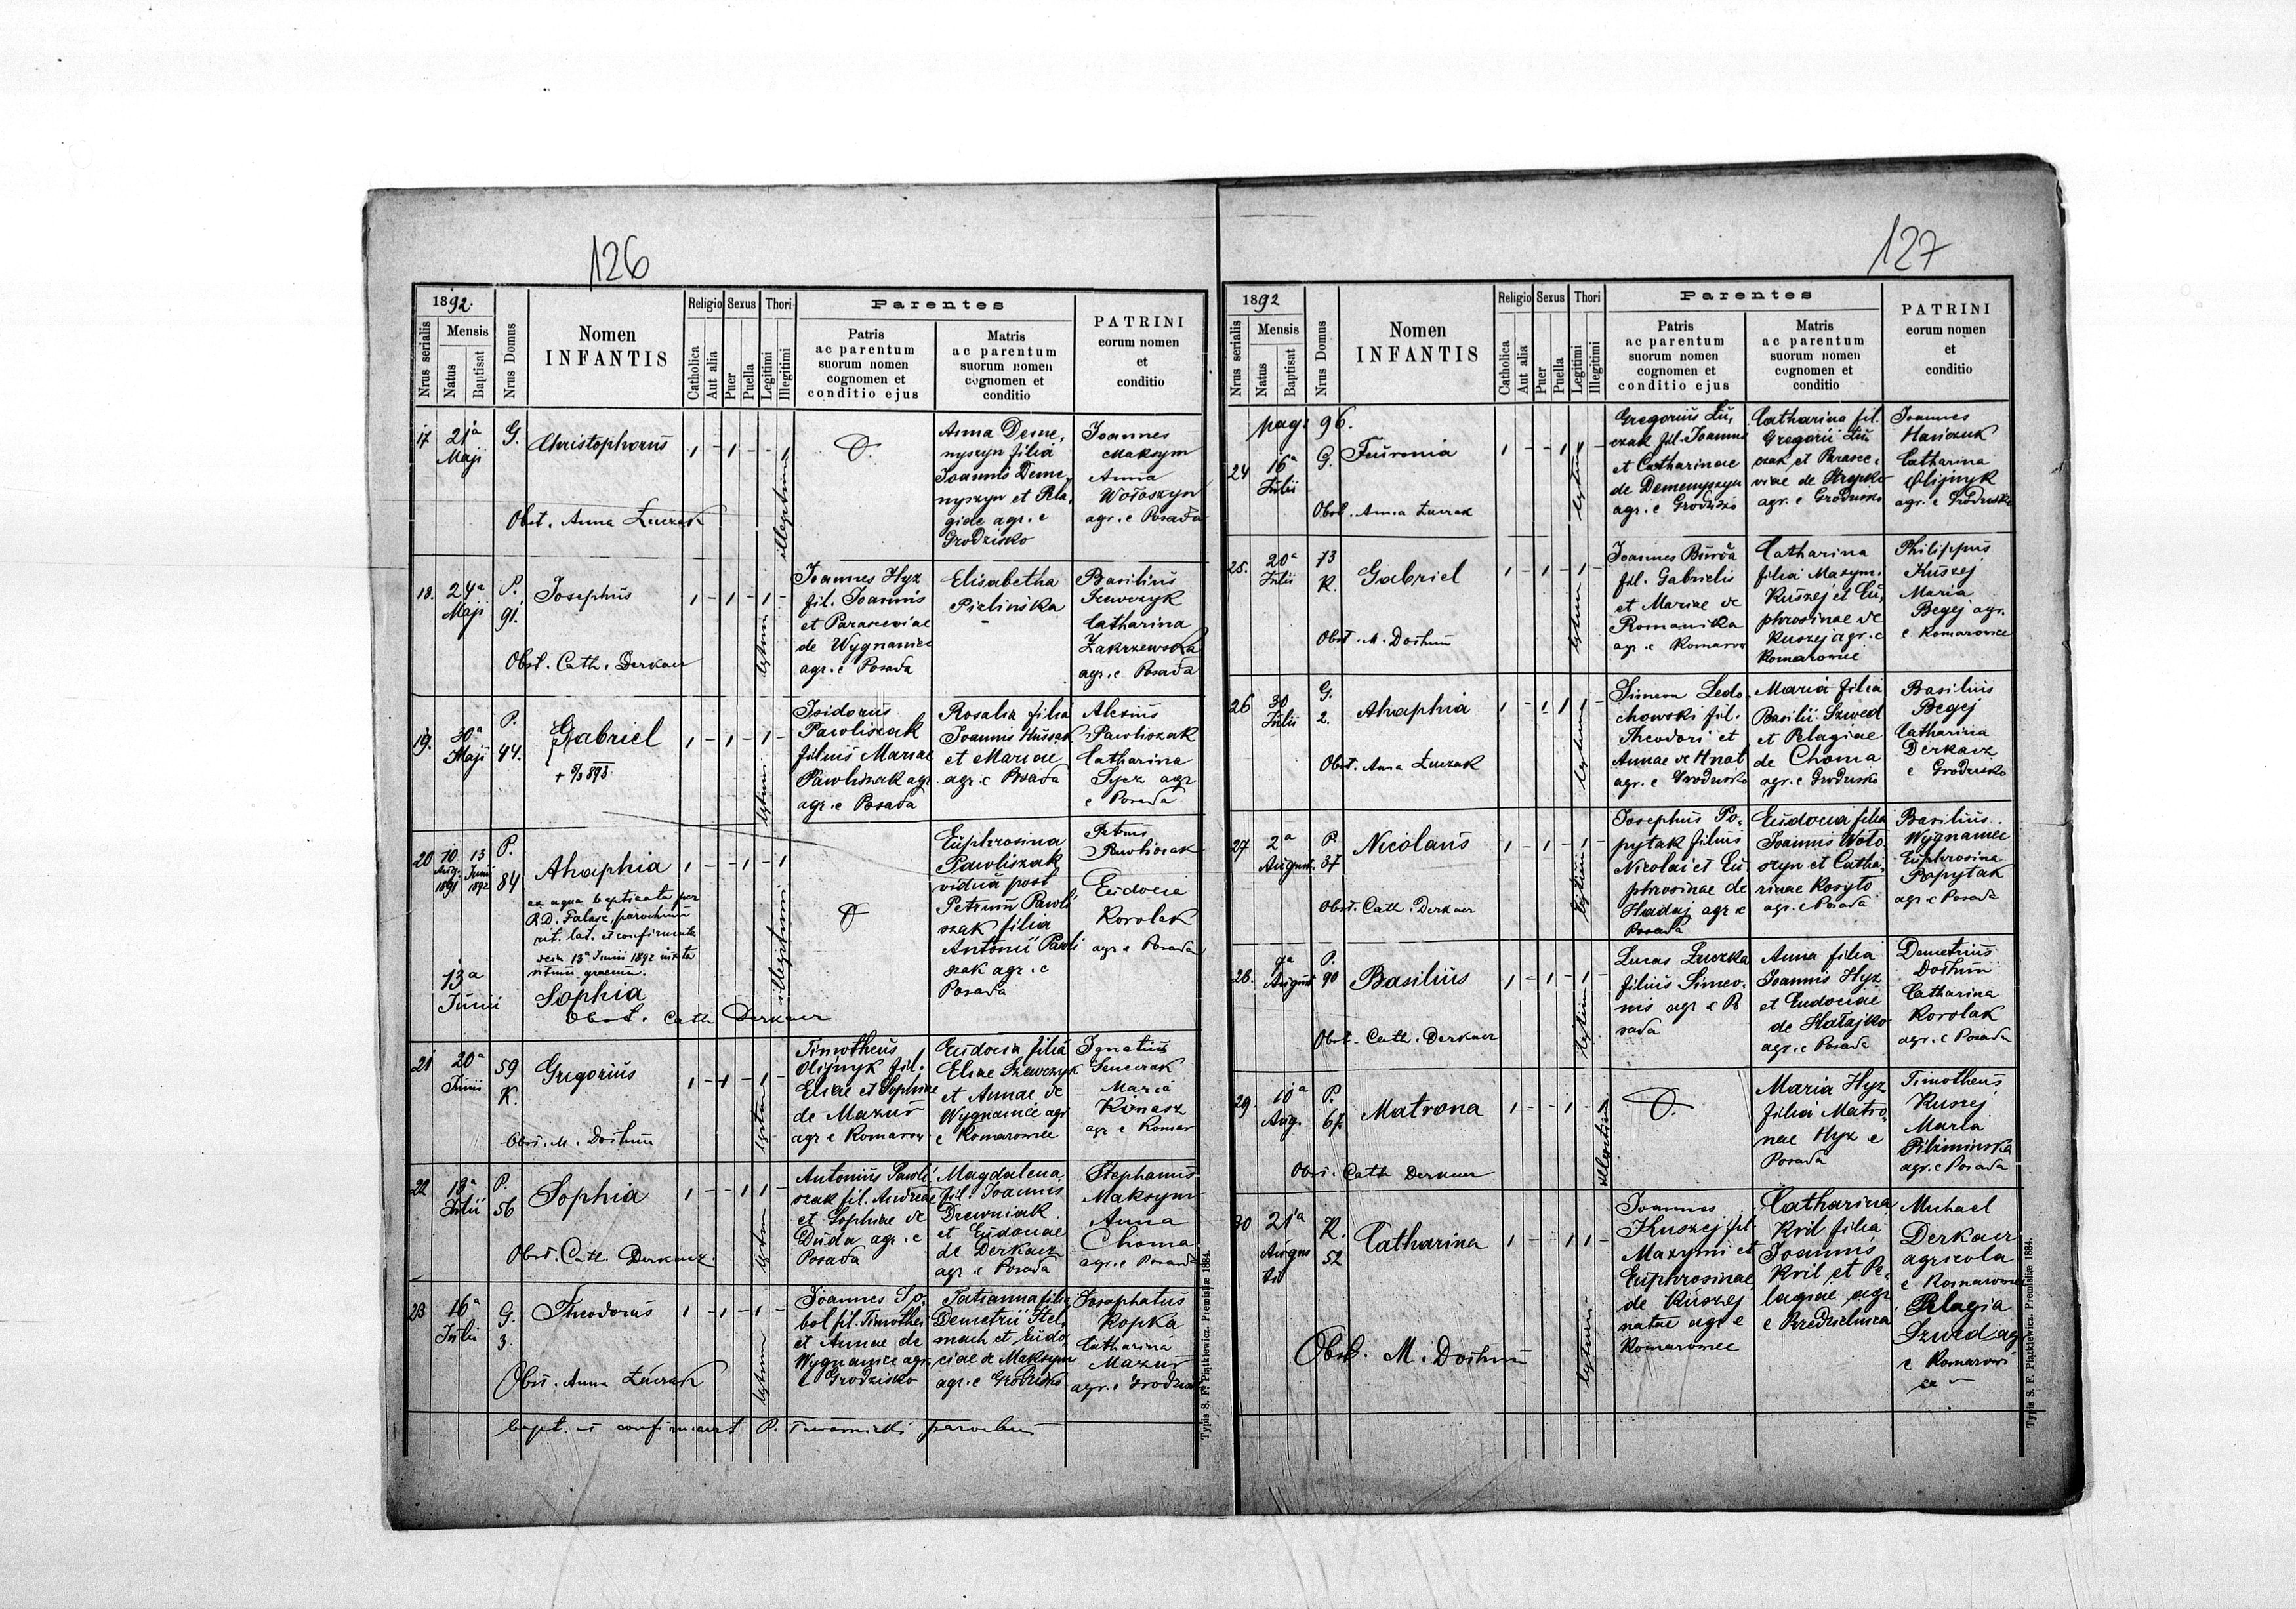 126
1892.
Nrus serialis
Mensis
Natus
Baptisat
Nrus Domus
Nomen
INFANTIS
Religio
Catholica
Aut alia
Sexus
Puer
Puella
Thori
Legitimi
Illegitimi
Parentes
Patris
ac parentum
suorum nomen
cognomen et
conditio ejus
Matris
ac parentum
suorum nomen
cognomen et
conditio
PATRINI
eorum nomen
et
conditio
17
21a
Maji
G.
Christophorus
Obst. Anna Łuczak
illegitimi
Anna Deme,
nyszyn filia
Joannis Deme,
nyszyn et Pela,
giae agr. e
Grodzisko
Joannes
Maksym
Anna
Wołoszyn
agr. e Posada
18.
24a
Maji
P.
91.
Josephus
Obst. Cath. Derkacz
Joannes Hyz
fil. Joannis
et Parasceviae
de Wygnaniec
agr. e Posada
Elisabetha
Basilius
Szewczyk
Catharina
Zakrzewska
agr. e Posada
19.
30a
Maji
P.
44.
Gabriel
Isidorus
Pawliszak
filius Mariae
Pawliszak agr.
agr. e Posada
Rosalia filia
Joannis Hussak
et Mariae
agr. e Posada
Alexius
Pawliszak
Catharina
Sycz agr
e Posada
20
10
Aug.
1891
13
Junii
1892
P.
84
Ahaphia
ex aqua baptisata per
R.D. Falasc, parochum
rit. lat. et confirmata
13a Junii 1892 juxta
ritum graecum.
13a
Junii
Sophia
Obst. Cath Derkacz
illegitimi
Euphrosina
Pawliszak
vidua post
Petrum Pawli
szak filia
Antonii Pawli
szak agr. e
Posada
Petrus
Pawliszak
Eudocia
Korolak
agr e Posada
21
20a
Junii
59
K.
Gregorius
Obst. M. Dośhun
Timotheus
Olijnyk fil.
Eliae et Sophiae
de Mazur
agr e Komarow
Eudocia filia
Eliae Szewczyk
et Annae de
Wygnaniec agr
e Komarowice
Ignatius
Senczak
Maria
Kiniasz
agr e Komar
22
13a
Julii
P.
56
Sophia
Obst. Cath. Derkacz.
Antonius Pawli
szak fil. Andreae
et Sophiae de
Duda agr. e
Posada
Magdalena
fil. Joannis
Drewniak
et Eudociae
de Derkacz
agr e Posada
Stephanus
Maksym
Anna
Choma
agr. e Posada
23
16a
Julii
G.
3.
Theodorus
Obst. Anna Łuczak
Joannes So,
bol fil. Timothei
et Annae de
Wygnaniec agr.
e Grodzisko
Tatianna filia
Demetrii Stel,
mach et Eudo,
ciae de Maksym
agr. e Grodzisko
Josaphatus
Kopka
Catharina
Mazur
agr. e Grodzisko
bapt. et confirmavit P. Tarnawski parochus
Typis S. F. Piątkiewicz. Premisliæ 1884.
127
1892
Nrus serialis
Mensis
Natus
Baptisat
Nrus Domus
Nomen
INFANTIS
Religio
Catholica
Aut alia
Sexus
Puer
Puella
Thori
Legitimi
Illegitimi
Parentes
Patris
ac parentum
suorum nomen
cognomen et
conditio ejus
Matris
ac parentum
suorum nomen
cognomen et
conditio
PATRINI
eorum nomen
et
conditio
pag. 96.
24
16a
Julii
G.
Feuronia
Obst. Anna Łuczak
Gregorius Łu,
czak fil. Joannis
et Catharinae
de Demenyszyn
agr. e Grodzisko
Catharina fil.
Gregorii Łu
czak et Parasce,
viae de Strepko
agr. e Grodzisko
Joannes
Hańczuk
Catharina
Olijnyk
agr. e Grodzisko
25.
20a
Julii
73
K.
Gabriel
Obst. M. Dośhun
Joannes Burda
fil. Gabrielis
et Mariae de
Romanika
agr. e Komarow
Catharina
filia Maxymi
Kuszej et Eu,
phrosinae de
Kuszej agr. e
Komarowice
Philippus
Kuszej
Maria
Begej agr.
e Komarowice
26
30
Julii
G.
2.
Ahaphia
Obst. Anna Łuczak
Simeon Ledo
chowski fil.
Theodori et
Annae de Hnat
agr. e Grodzisko
Maria filia
Basilii Szwed
et Pelagiae
de Choma
agr. e Grodzisko
Basilius
Begej
Catharina
Derkacz
e Grodzisko
27
2a
August.
P.
37
Nicolaus
Obst. Cath. Derkacz
Josephus Po,
pytak filius
Nicolai et Eu
phrosinae de
Hadaj agr e
Posada
Eudocia filia
Joannis Woło
szyn et Catha,
rinae Kosyło
agr. e Posada
Basilius
Wygnaniec
Euphrosina
Popytak
agr e Posada
28.
August
P.
90
Basilius
Obst. Cath. Derkacz
Lucas Łuczka
filius Simeo,
nis agr e Po
sada
Anna filia
Joannis Hyz
et Eudociae
de Hałajko
agr. e Posada
Demetrius
Dośhun
Catharina
Korolak
agr. e Posada
29.
10a
Aug.
P.
67
Matrona
Obst. Cath Derkacz
illegitimi
Maria Hyz
filia Matro,
nae Hyz e
Posada
Timotheus
Kuszej
Maria
Pilźminska
agr. e Posada
30
21a
Augus
ti
K.
52
Catharina
Obst. M. Dośhun
Joannes
Kuszej fil.
Maxymi et
Euphrosinae
de Kuszej
natae agr e
Komarowice
Catharina
Kril filia
Joannis
Kril et Pe,
lagiae agr.
e Brzezielnica
Michael
Derkacz
agricola
e Komarowice
Pelagia
Szwed agr
e Komarowi
ce
Typis S. F. Piątkiewicz. Premisliæ 1884.